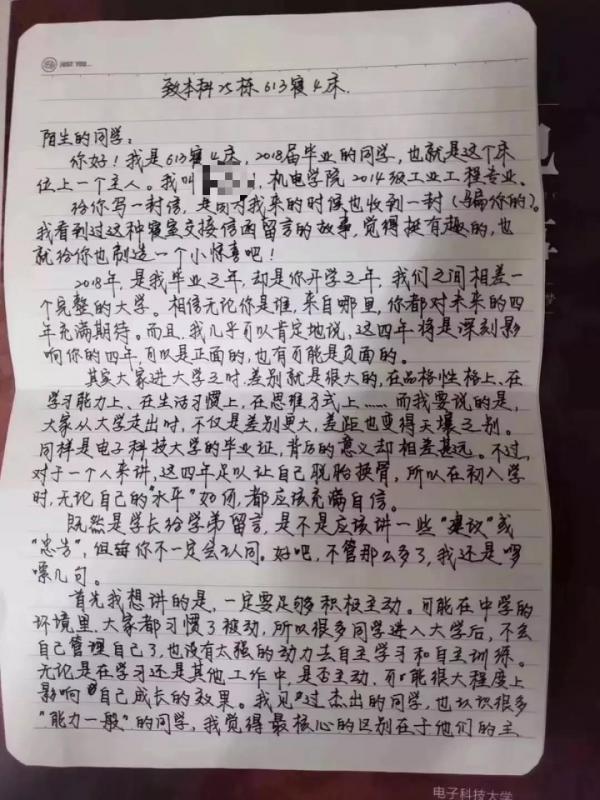 JUST YOU...
致本科25栋613寝4床.
陌生的同学:
你好!我是613寝4床,2018届毕业的同学,也就是这个床
位上一个主人。我叫 ,机电学院2014级工业工程专业.
给你写一封信,是因为我来的时候也收到一封(骗你的).
我看到过这种寝室交接信函留言的故事,觉得挺有趣的,也
就给你也制造一个小惊喜吧!
2018年,是我毕业之年,却是你开学之年,我们之间相差一
个完整的大学。相信无论你是谁,来自哪里,你都对未来的四
年充满期待。而且,我几乎可以肯定地说,这四年将是深刻影
响你的四年,可以是正面的,也有可能是负面的。
其实大家进大学之时,差别就是很大的,在品格性格上、在
学习能力上、在生活习惯上,在思维方式上……而我要说的是,
大家从大学走出时,不仅是差别更大,差距也变得天壤之别。
同样是电子科技大学的毕业证,背后的意义却相差甚远。不过,
对于一个人来讲,这四年足以让自己脱胎换骨,所以在初入学
时,无论自己的"水平"如何,都应该充满自信。
既然是学长给学弟留言,是不是应该讲一些"建议"或
"忠告",但每你不一定会认同。好吧,不管那么多了,我还是啰
嗦几句。
首先我想讲的是,一定要足够积极主动。可能在中学的
环境里,大家都习惯了被动,所以很多同学进入大学后,不会
自己管理自己了,也没有太强的动力去自主学习和自主训练。
无论是在学习还是其他工作中,是否主动,可能很大程度上
影响自己成长的效果。我见过杰出的同学,也认识很多
"能力一般"的同学,我觉得最核心的区别在于他们的主
电子科技大学